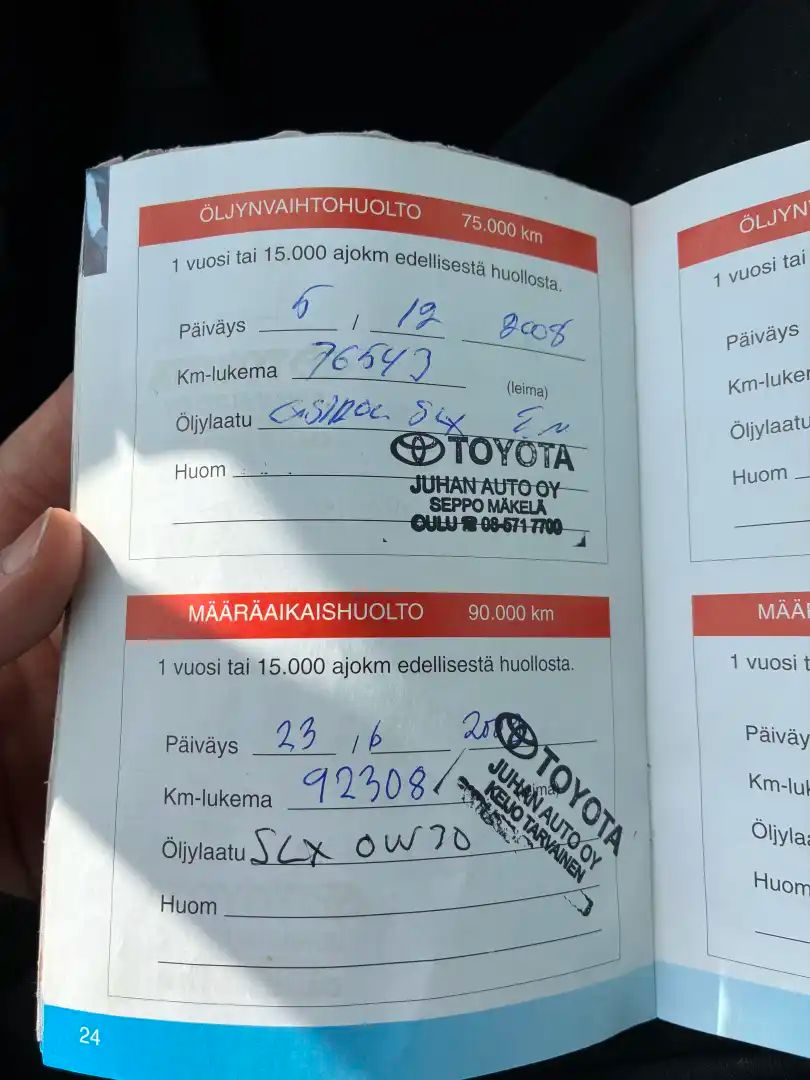 ÖLJYNVAIHTOHUOLTO 75.000 km
1 vuosi tai 15.000 ajokm edellisestä huollosta.
Päiväys 5 / 12 2008
Km-lukema 76543
(leima)
Öljylaatu CASTROL SLX
Huom
TOYOTA
JUHAN AUTO OY
SEPPO MÄKELÄ
OULU ☎ 08-571 7700
MÄÄRÄAIKAISHUOLTO 90.000 km
1 vuosi tai 15.000 ajokm edellisestä huollosta.
Päiväys 23 / 6
Km-lukema 92308
Öljylaatu SLX 0W30
Huom
TOYOTA
JUHAN AUTO OY
KEIJO TARVAINEN
24
ÖLJYN
1 vuosi tai
Päiväys
Km-luke
Öljylaatu
Huom
MÄÄ
1 vuosi
Päiväy
Km-lu
Öljyla
Huom